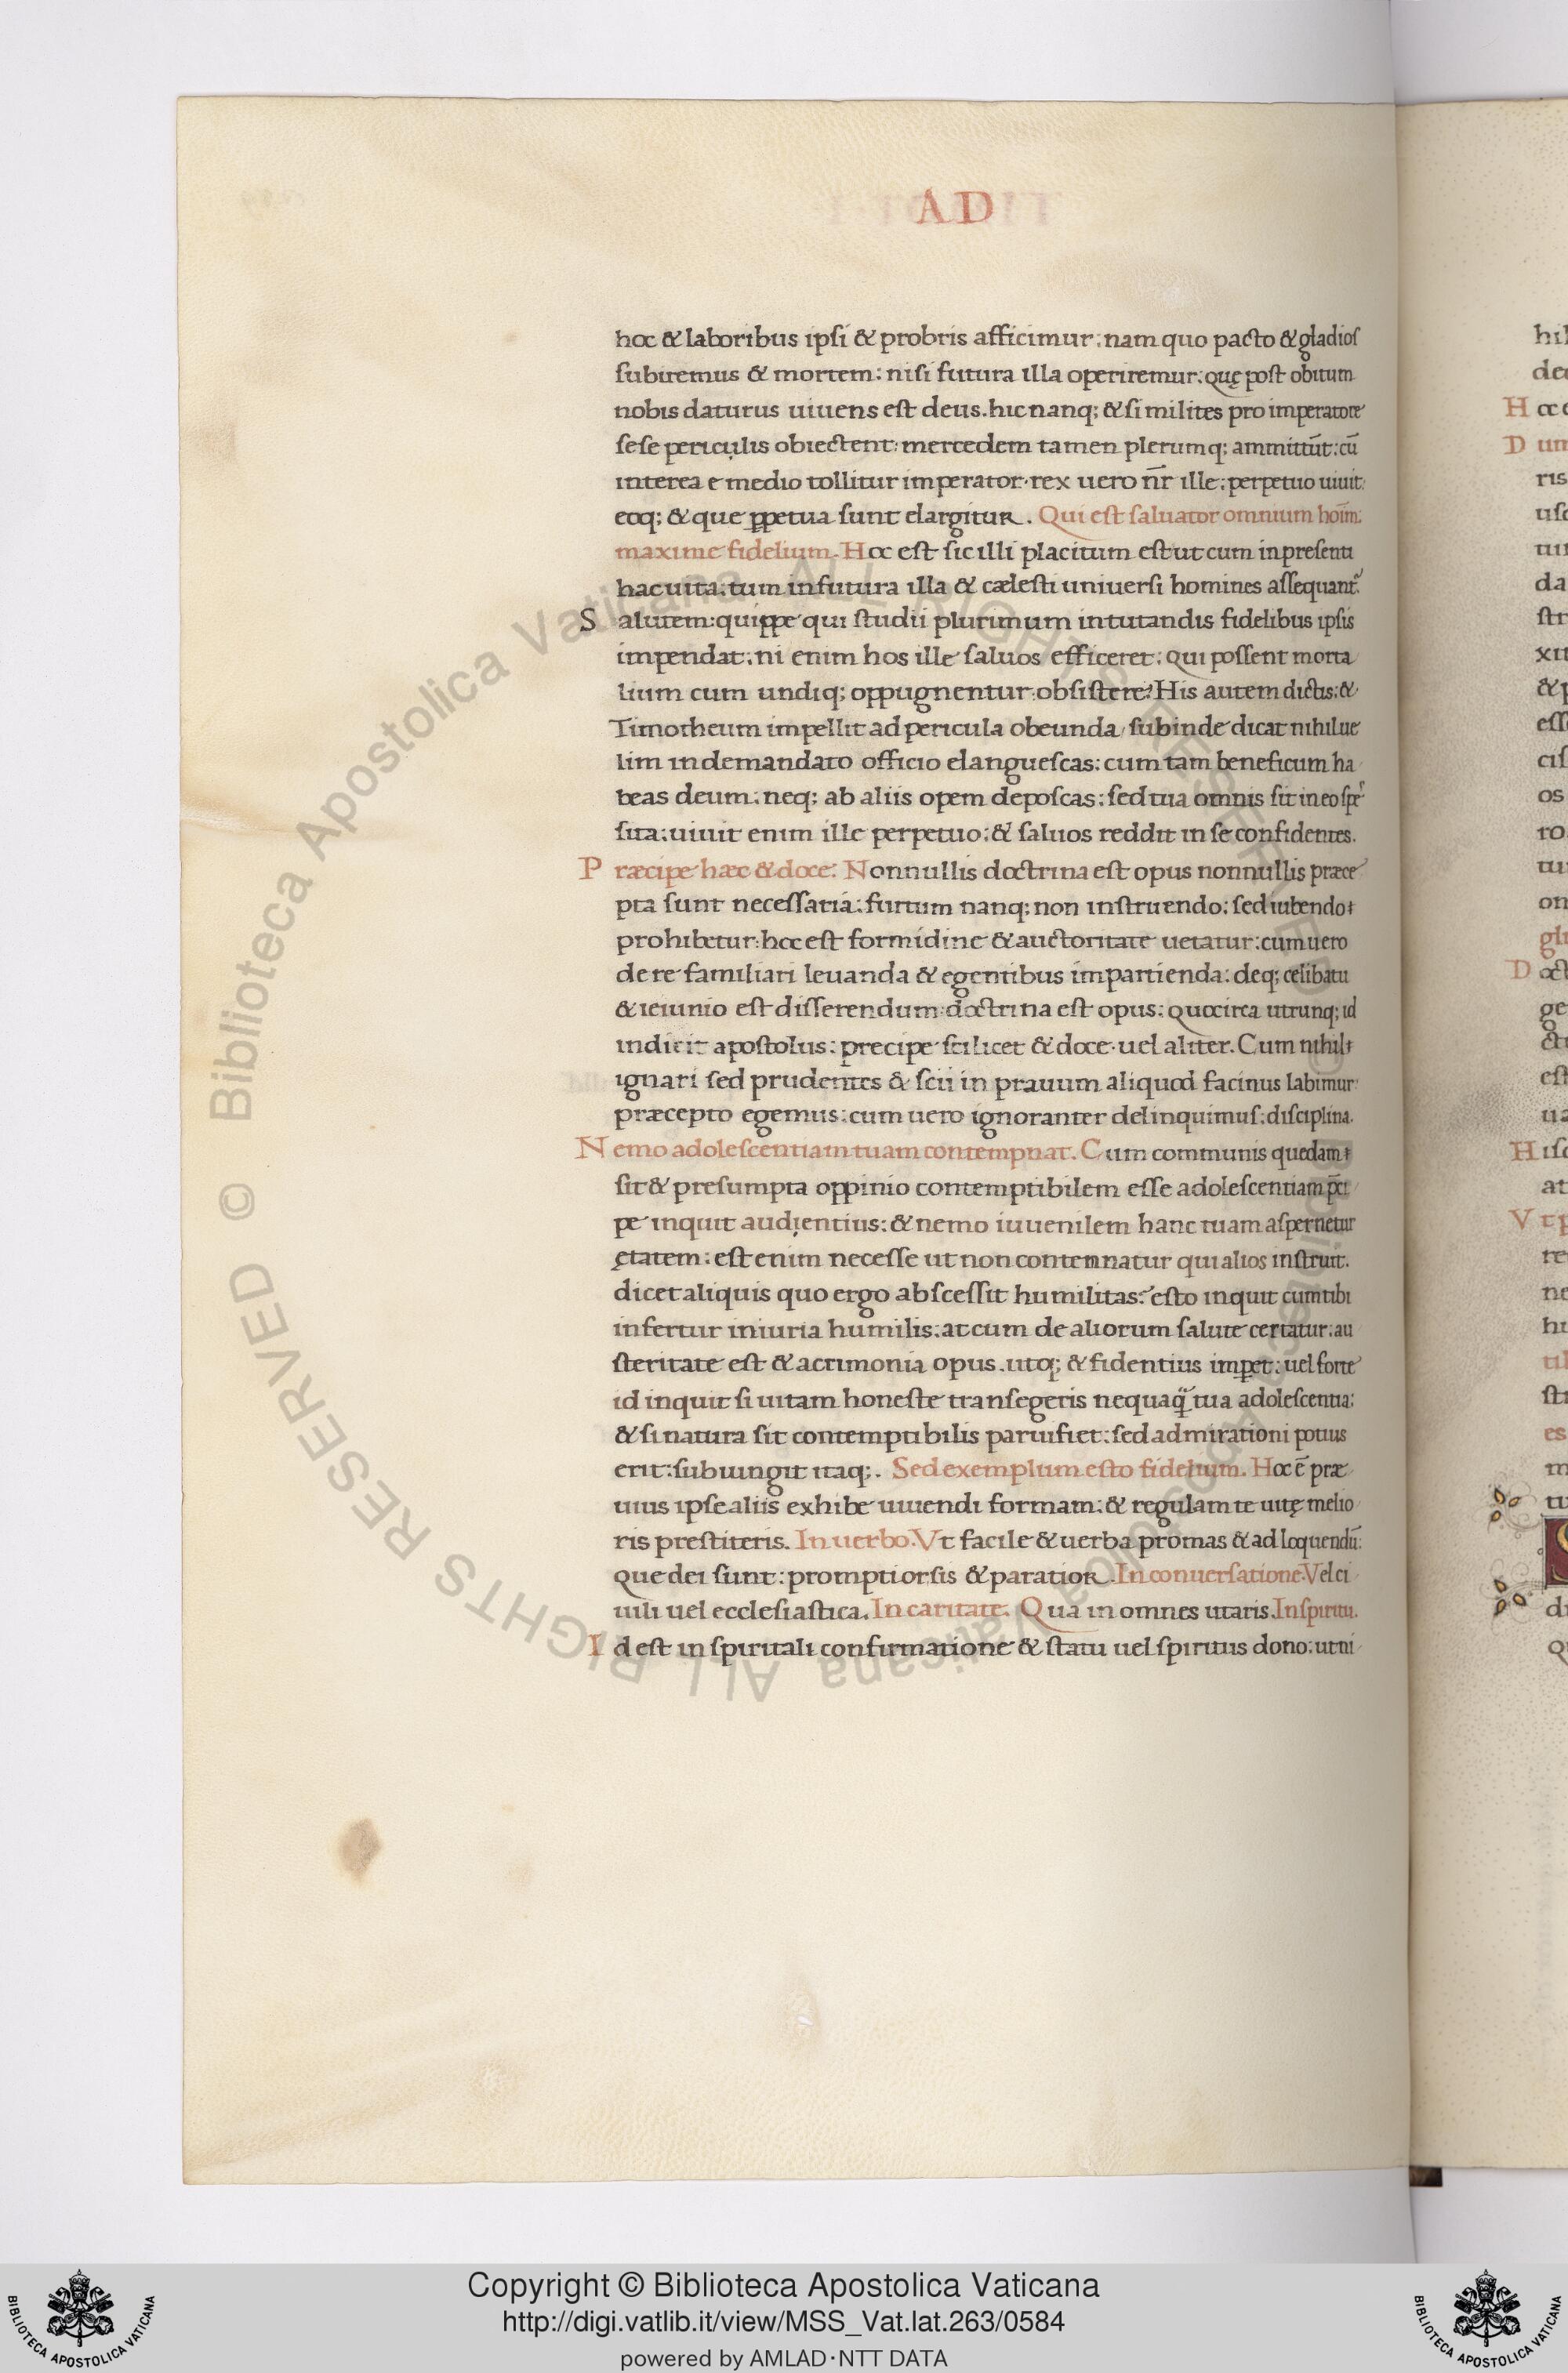 AD
hoc & laboribus ipsi & probris afficimur: nam quo pacto & gladios
subiremus & mortem: nisi futura illa operiremur: quę post obitum
nobis daturus uiuens est deus. hic nanq; & si milites pro imperatore
sese periculis obiectent: mercedem tamen plerumq; ammittūt: cū
interea e medio tollitur imperator. rex uero nr̄ ille: perpetuo uiuit:
eoq; & que ꝑpetua sunt elargitur. Qui est saluator omnium hoīm:
maxime fidelium. Hoc est sic illi placitum est ut cum in presenti
hac uita: tum in futura illa & cælesti uniuersi homines assequant᷑
Salutem: quippe qui studii plurimum in tutandis fidelibus ipsis
impendat: ni enim hos ille saluos efficeret: qui possent morta
lium cum undiq; oppugnentur: obsistere? His autem dictis: &
Timotheum impellit ad pericula obeunda, subinde dicat nihil ue
lim in demandato officio elanguescas: cum tam beneficum ha
beas deum: neq; ab aliis opem deposcas: sed tua omnis sit in eo spe
sita: uiuit enim ille perpetuo: & saluos reddit in se confidentes.
Præcipe hæc & doce. Nonnullis doctrina est opus nonnullis præce
pta sunt necessaria: furtum nanq; non instruendo: sed iubendo
prohibetur: hoc est formidine & auctoritate uetatur: cum uero
de re familiari leuanda & egentibus impartienda: deq; celibatu
& ieiunio est disserendum: doctrina est opus: quocirca utrunq; id
indicit apostolus: precipe scilicet & doce. uel aliter. Cum nihil
ignari sed prudentes & scii in prauum aliquod facinus labimur
præcepto egemus: cum uero ignoranter delinquimus: disciplina.
Nemo adolescentiam tuam contempnat. Cum communis quedam
sit & presumpta oppinio contemptibilem esse adolescentiam p̄ci
pe inquit audientius: & nemo iuuenilem hanc tuam aspernetur
ętatem: est enim necesse ut non contemnatur qui alios instruit.
dicet aliquis quo ergo abscessit humilitas? esto inquit cum tibi
infertur iniuria humilis: at cum de aliorum salute certatur: au
steritate est & acrimonia opus. utq; & fidentius imꝑet: uel forte
id inquit si uitam honeste transegeris nequaq̃ tua adolescentia:
& si natura sit contemptibilis paruifiet: sed admirationi potius
erit: subiungit itaq;. Sed exemplum esto fidelium. Hoc ē præ
uius ipse aliis exhibe uiuendi formam: & regulam te uitę melio
ris prestiteris. In uerbo. Vt facile & uerba promas & ad loquendū:
que dei sunt: promptior sis & paratior. In conuersatione. Vel ci
uili uel ecclesiastica. In caritate. Qua in omnes utaris. In spiritu.
Id est in spirituali confirmatione & statu uel spiritus dono: ut ni
© Biblioteca Apostolica Vaticana ALL RIGHTS RESERVED
© Biblioteca Apostolica Vaticana ALL RIGHTS RESERVED
Copyright © Biblioteca Apostolica Vaticana
http://digi.vatlib.it/view/MSS_Vat.lat.263/0584
powered by AMLAD·NTT DATA
BIBLIOTECA APOSTOLICA VATICANA
BIBLIOTECA APOSTOLICA VATICANA